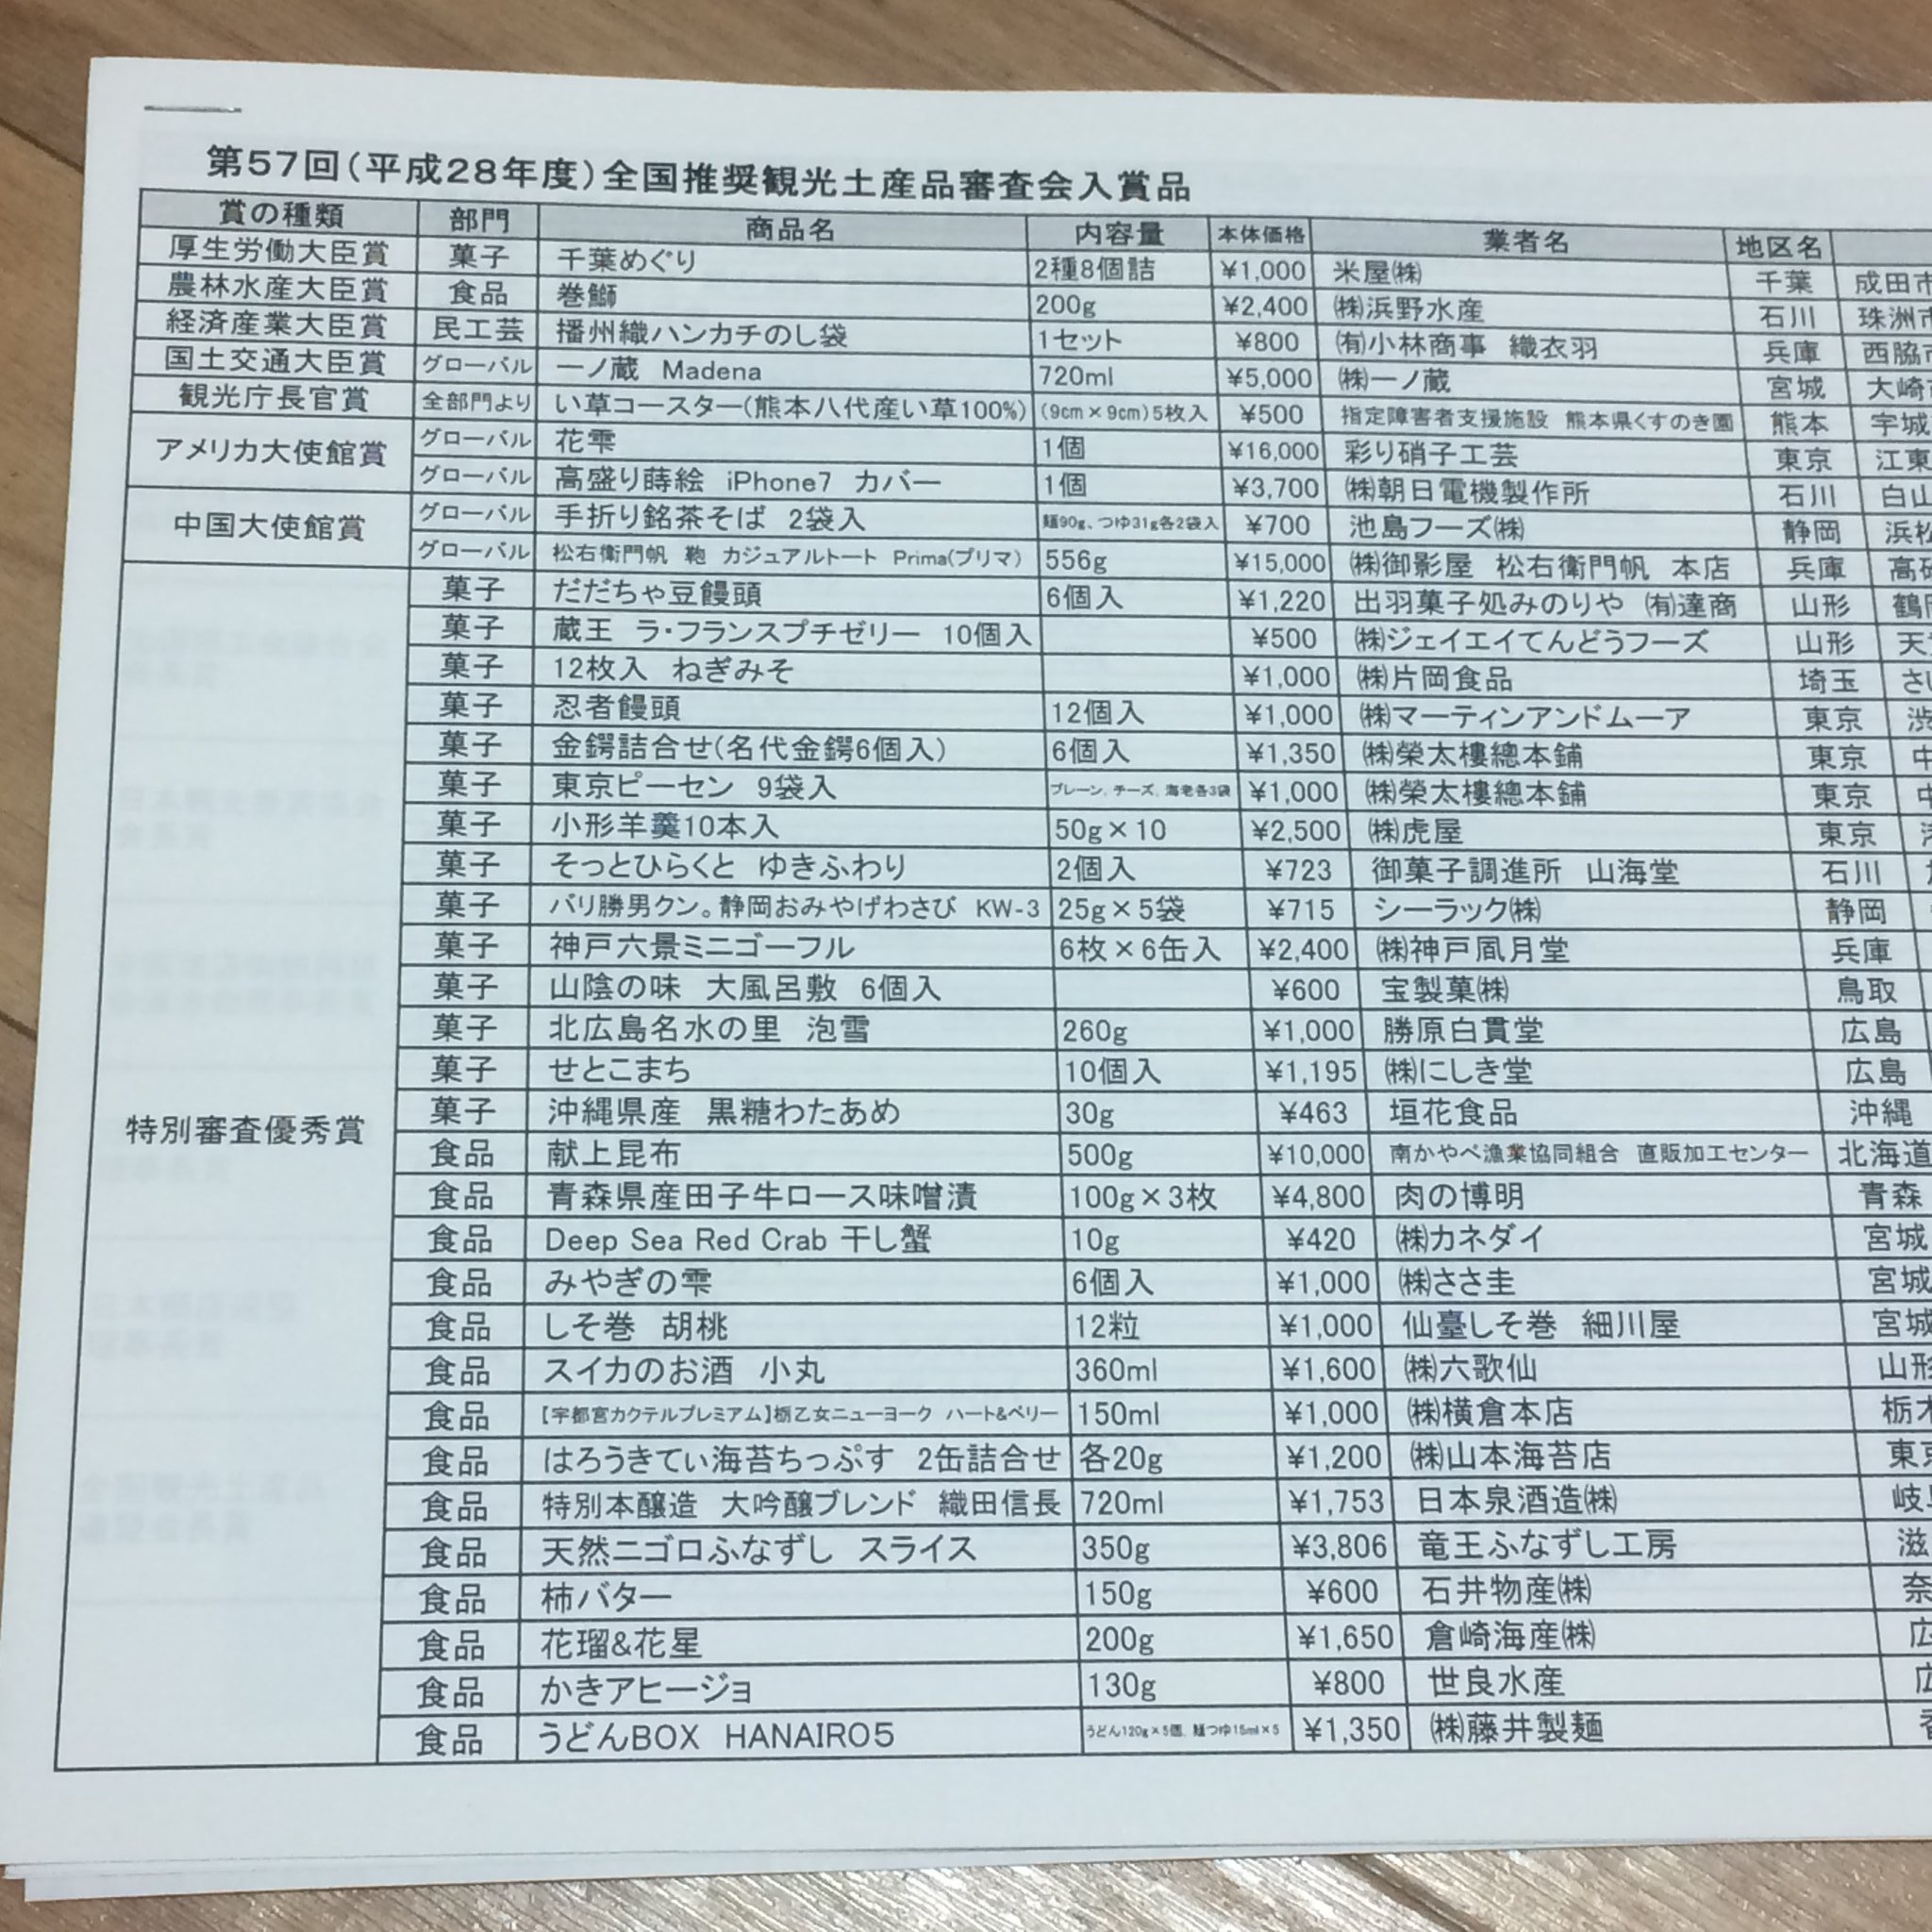 第57回(平成28年度)全国推奨観光土産品審査会入賞品
賞の種類 部門 商品名 内容量 本体価格 業者名 地区名
厚生労働大臣賞 菓子 千葉めぐり 2種8個詰 ¥1,000 米屋㈱ 千葉 成田市
農林水産大臣賞 食品 巻鰤 200g ¥2,400 ㈱浜野水産 石川 珠洲市
経済産業大臣賞 民工芸 播州織ハンカチのし袋 1セット ¥800 ㈲小林商事 織衣羽 兵庫 西脇市
国土交通大臣賞 グローバル 一ノ蔵 Madena 720ml ¥5,000 ㈱一ノ蔵 宮城 大崎
観光庁長官賞 全部門より い草コースター(熊本八代産い草100%) (9cm×9cm)5枚入 ¥500 指定障害者支援施設 熊本県くすのき園 熊本 宇城
アメリカ大使館賞 グローバル 花雫 1個 ¥16,000 彩り硝子工芸 東京 江東
グローバル 高盛り蒔絵 iPhone7 カバー 1個 ¥3,700 ㈱朝日電機製作所 石川 白山
中国大使館賞 グローバル 手折り銘茶そば 2袋入 麺90g、つゆ31g各2袋入 ¥700 池島フーズ㈱ 静岡 浜松
グローバル 松右衛門帆 鞄 カジュアルトート Prima(プリマ) 556g ¥15,000 ㈱御影屋 松右衛門帆 本店 兵庫 高砂
特別審査優秀賞 菓子 だだちゃ豆饅頭 6個入 ¥1,220 出羽菓子処みのりや ㈲達商 山形 鶴
菓子 蔵王 ラ・フランスプチゼリー 10個入 ¥500 ㈱ジェイエイてんどうフーズ 山形 天
菓子 12枚入 ねぎみそ ¥1,000 ㈱片岡食品 埼玉 さ
菓子 忍者饅頭 12個入 ¥1,000 ㈱マーティンアンドムーア 東京 渋
菓子 金鍔詰合せ(名代金鍔6個入) 6個入 ¥1,350 ㈱榮太樓總本鋪 東京 中
菓子 東京ピーセン 9袋入 プレーン、チーズ、海老各3袋 ¥1,000 ㈱榮太樓總本鋪 東京 中
菓子 小形羊羹10本入 50g×10 ¥2,500 ㈱虎屋 東京
菓子 そっとひらくと ゆきふわり 2個入 ¥723 御菓子調進所 山海堂 石川
菓子 バリ勝男クン。静岡おみやげわさび KW-3 25g×5袋 ¥715 シーラック㈱ 静岡
菓子 神戸六景ミニゴーフル 6枚×6缶入 ¥2,400 ㈱神戸凮月堂 兵庫
菓子 山陰の味 大風呂敷 6個入 ¥600 宝製菓㈱ 鳥取
菓子 北広島名水の里 泡雪 260g ¥1,000 勝原白貫堂 広島
菓子 せとこまち 10個入 ¥1,195 ㈱にしき堂 広島
菓子 沖縄県産 黒糖わたあめ 30g ¥463 垣花食品 沖縄
食品 献上昆布 500g ¥10,000 南かやべ漁業協同組合 直販加工センター 北海道
食品 青森県産田子牛ロース味噌漬 100g×3枚 ¥4,800 肉の博明 青森
食品 Deep Sea Red Crab 干し蟹 10g ¥420 ㈱カネダイ 宮城
食品 みやぎの雫 6個入 ¥1,000 ㈱ささ圭 宮城
食品 しそ巻 胡桃 12粒 ¥1,000 仙臺しそ巻 細川屋 宮城
食品 スイカのお酒 小丸 360ml ¥1,600 ㈱六歌仙 山形
食品 【宇都宮カクテルプレミアム】栃乙女ニューヨーク ハート&ベリー 150ml ¥1,000 ㈱横倉本店 栃木
食品 はろうきてぃ海苔ちっぷす 2缶詰合せ 各20g ¥1,200 ㈱山本海苔店 東京
食品 特別本醸造 大吟醸ブレンド 織田信長 720ml ¥1,753 日本泉酒造㈱ 岐
食品 天然ニゴロふなずし スライス 350g ¥3,806 竜王ふなずし工房 滋
食品 柿バター 150g ¥600 石井物産㈱ 奈
食品 花瑠&花星 200g ¥1,650 倉崎海産㈱ 広
食品 かきアヒージョ 130g ¥800 世良水産 広
食品 うどんBOX HANAIRO5 うどん120g×5個、麺つゆ15ml×5 ¥1,350 ㈱藤井製麺 香